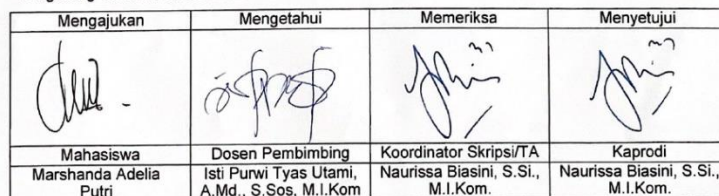 Mengajukan Mengetahui Memeriksa Menyetujui
Mahasiswa Dosen Pembimbing Koordinator Skripsi/TA Kaprodi
Marshanda Adelia Isti Purwi Tyas Utami, Naurissa Biasini, S.Si., Naurissa Biasini, S.Si.,
Putri A.Md., S.Sos, M.I.Kom M.I.Kom. M.I.Kom.